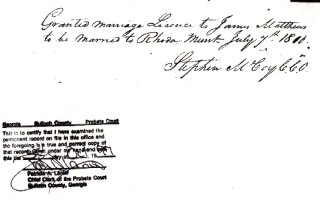 Granted marriage Licence to James Matthews
to be married to Rhoda July 7th
Stephen McCoy CCO.
Georgia Bulloch County Probate Court
This is to certify that I have examined the
permanent record on file in this office and
the foregoing is true and correct copy of
that record. Given under my hand and
this
Patricia A.
Chief Clerk of the Probate Court
Bulloch County, Georgia